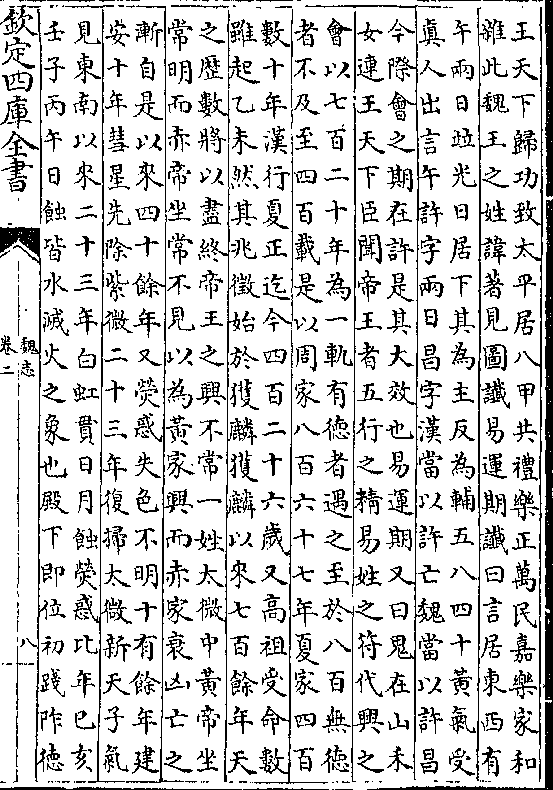 王天下歸功致太平居八甲共禮樂正萬民嘉樂家和
雜此魏王之姓諱著見圖讖易運期讖曰言居東西有
午兩日竝光日居下其為主反為輔五八四十黃氣受
真人出言午許字兩日昌字漢當以許亡魏當以許昌
今際會之期在許是其大效也易運期又曰鬼在山禾
女連王天下臣聞帝王者五行之精易姓之符代興之
會以七百二十年為一軌有德者遇之至於八百無德
者不及至四百載是以周家八百六十七年夏家四百
數十年漢行夏正迄今四百二十六歲又高祖受命數
雖起乙未然其兆徵始於獲麟獲麟以來七百餘年天
之歷數將以盡終帝王之興不常一姓太微中黃帝坐
常明而赤帝坐常不見以為黃家興而赤家衰凶亡之
漸自是以來四十餘年又熒惑失色不明十有餘年建
安十年彗星先除紫微二十三年復掃太微新天子氣
見東南以來二十三年白虹貫日月蝕熒惑比年己亥
壬子丙午日蝕皆水滅火之象也殿下即位初踐阼德
欽定四庫全書
魏志
卷二
八